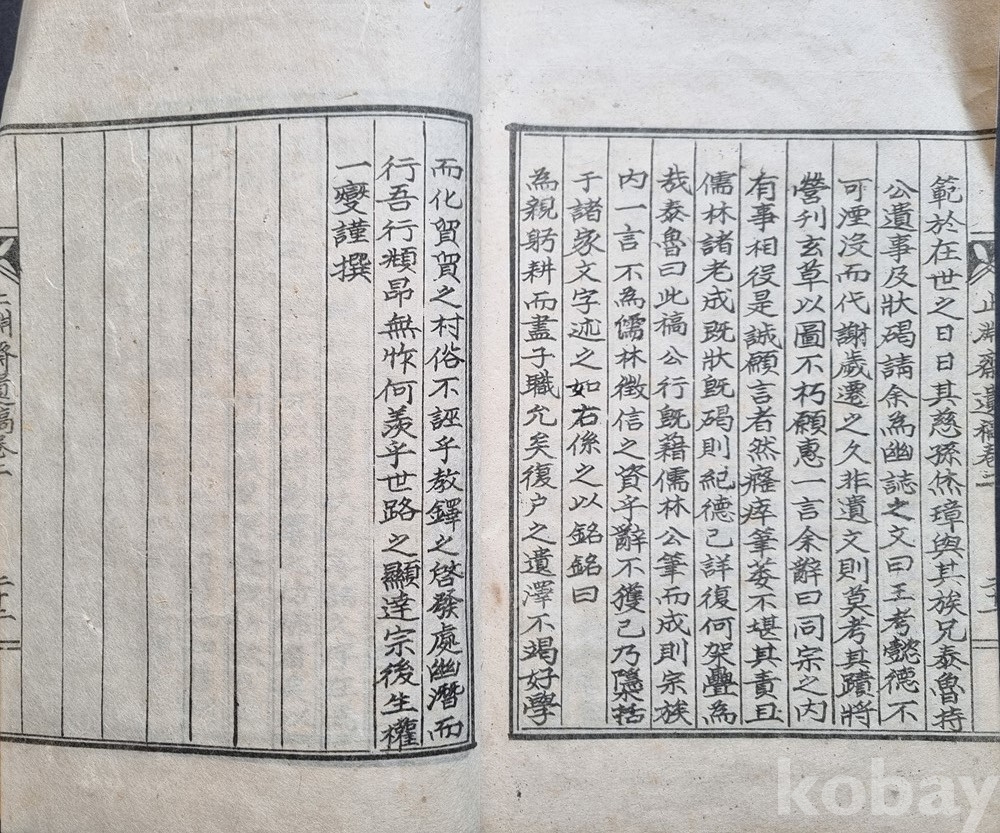 止淵齋遺稿卷二
範於在世之日日其慈孫烋璋與其族兄泰魯持
公遺事及狀碣請余爲幽誌之文曰王考懿德不
可湮沒而代謝歲遷之久非遺文則莫考其蹟將
營刊玄草以圖不朽願惠一言余辭曰同宗之內
有事相役是誠願言者然癃瘁筆萎不堪其責且
儒林諸老成旣狀旣碣則紀德已詳復何架疊爲
哉泰魯曰此稿公行旣藉儒林公筆而成則宗族
內一言不爲儒林徵信之資乎辭不獲已乃隱括
于諸家文字述之如右係之以銘銘曰
爲親躬耕而盡子職允矣復户之遺澤不竭好學
而化賀賀之村俗不誣乎敎鐸之啓發處幽潛而
行吾行頫昻無怍何羨乎世路之顯達宗後生權
一變謹撰
止淵齋遺稿卷二
二十二
kobay